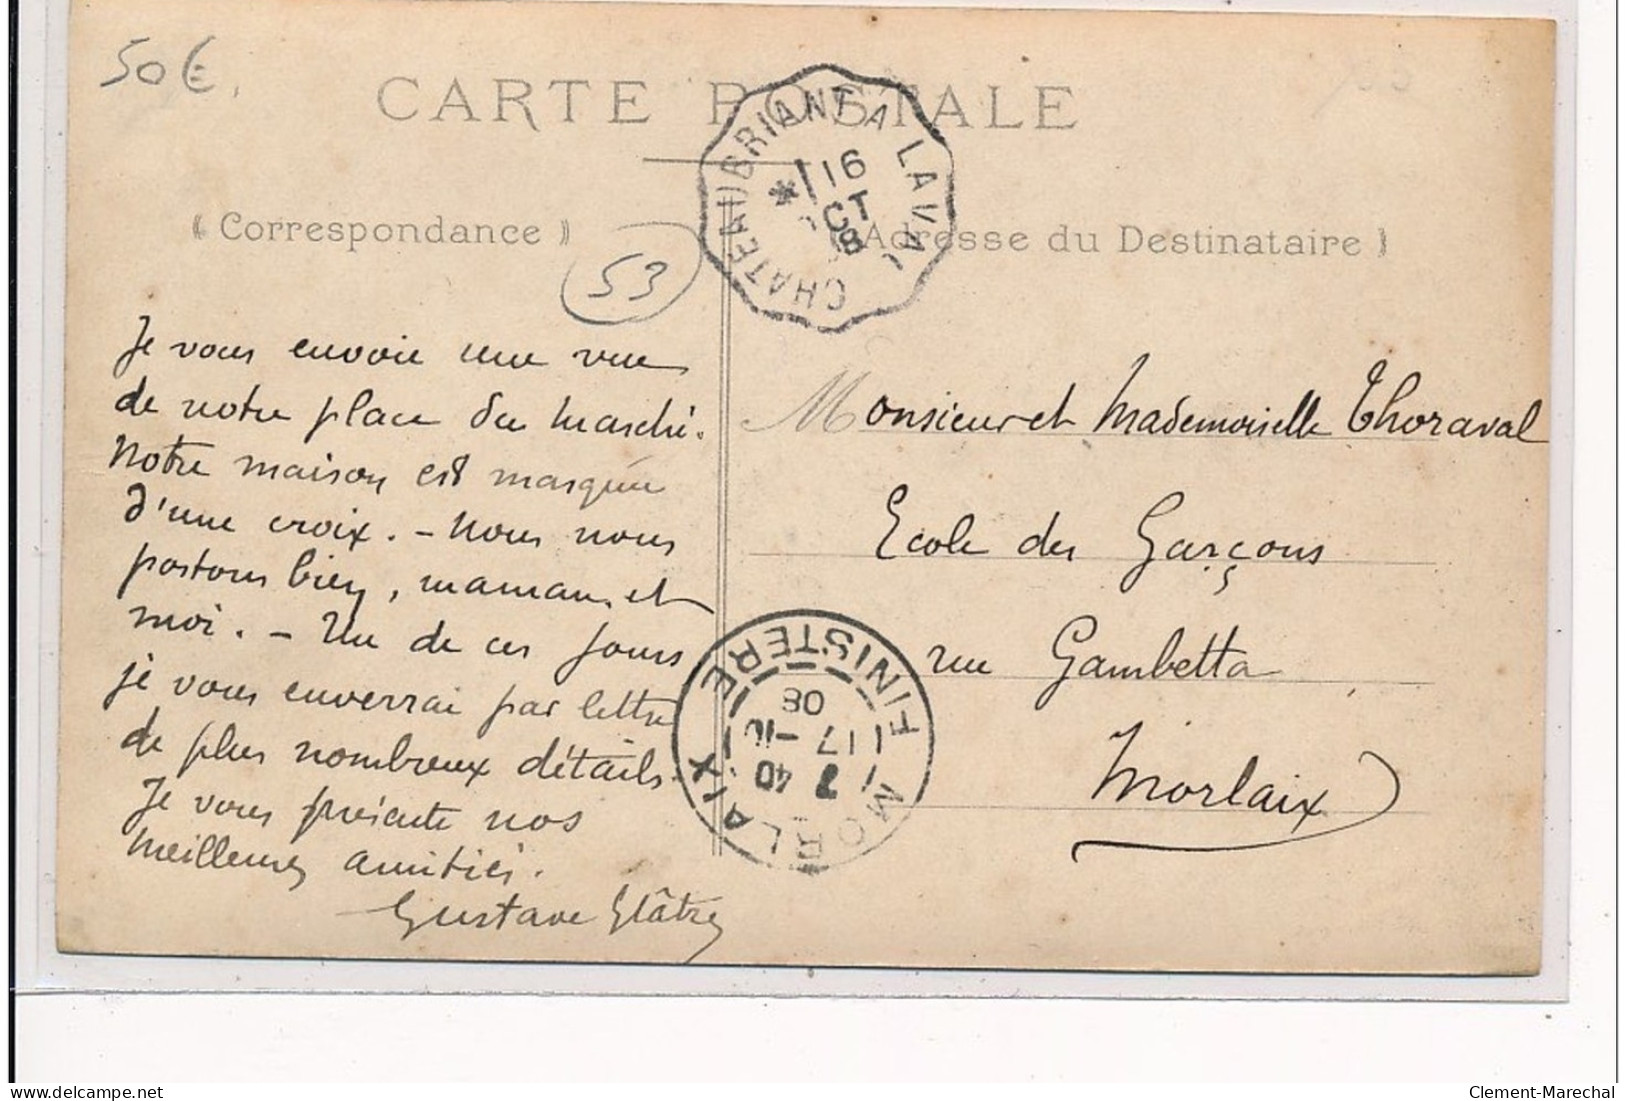 50€.
CARTE POSTALE
CHATEAUBRIANT A LAVAL
16
OCT
08
(Correspondance)
(Adresse du Destinataire)
53
Je vous envoie une vue
de notre place du marché.
Notre maison est marquée
d'une croix. - Nous nous
portons bien, maman et
moi. - Un de ces jours
je vous enverrai par lettre
de plus nombreux détails.
Je vous présente nos
meilleures amitiés.
Gustave Glâtre
Monsieur et Mademoiselle Thoraval
Ecole des Garçons
rue Gambetta
Morlaix
MORLAIX FINISTERE
7 40
17 -10
08
Clement-Marechal
www.delcampe.net